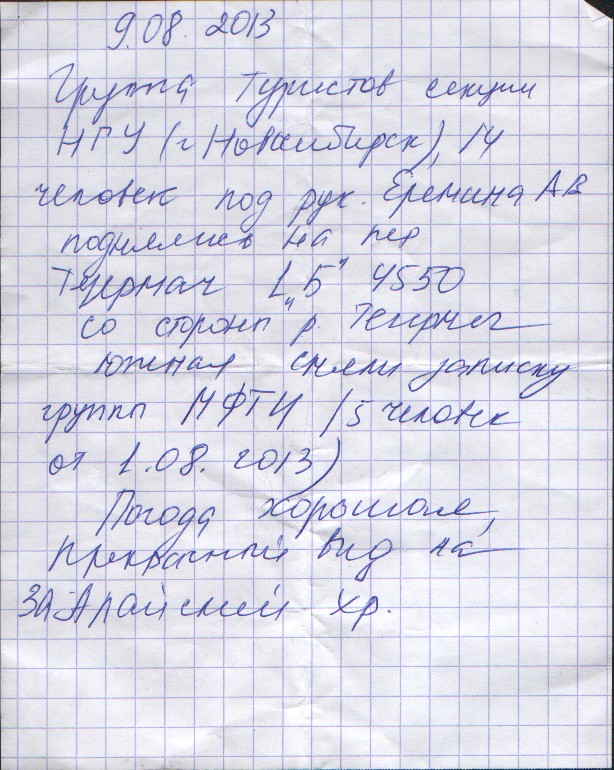 9.08. 2013
Группа туристов секции
НГУ (г Новосибирск), 14
человек под рук. Ерёмина АВ
поднялись на пер
1 "Б" 4550
со стороны р.
южная сняли записку
группы МФТИ (5 человек
от 1.08. 2013)
Погода хорошая,
прекрасный вид на
ЗаАлайский хр.